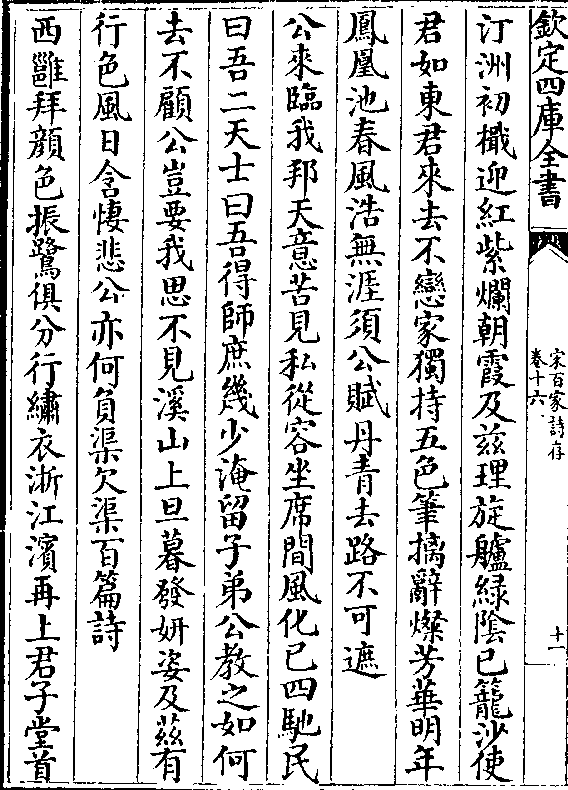 欽定四庫全書
宋百家詩存
卷十六
十一
汀洲初檥迎紅紫爛朝霞及兹理旋艫緑隂已籠沙使
君如東君來去不戀家獨持五色筆摛辭燦芳華明年
鳳凰池春風浩無涯須公賦丹青去路不可遮
公來臨我邦天意苦見私從容坐席間風化已四馳民
曰吾二天士曰吾得師庶幾少淹留子弟公教之如何
去不顧公豈要我思不見溪山上旦暮發妍姿及兹有
行色風日含悽悲公亦何負渠欠渠百篇詩
西雝拜顔色振鷺俱分行繡衣浙江濱再上君子堂首